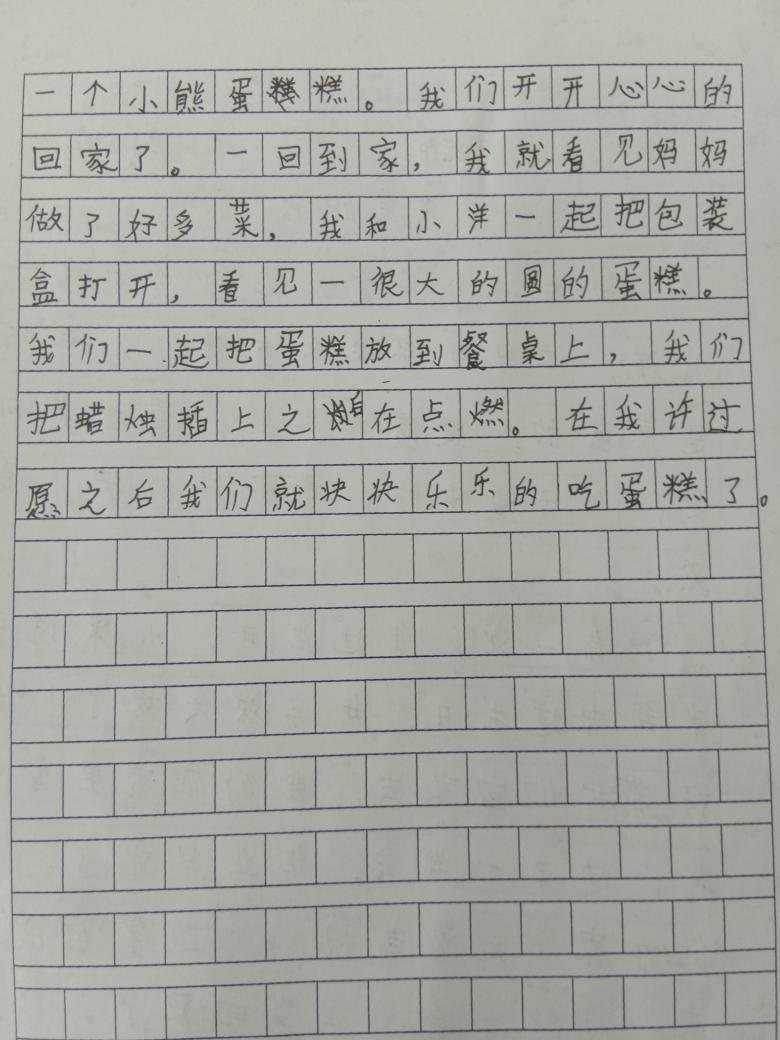 一个小熊蛋糕。我们开开心心的
回家了。一回到家，我就看见妈妈
做了好多菜，我和小洋一起把包装
盒打开，看见一很大的圆的蛋糕。
我们一起把蛋糕放到餐桌上，我们
把蜡烛插上之在点燃。在我许过
愿之后我们就快快乐乐的吃蛋糕了。